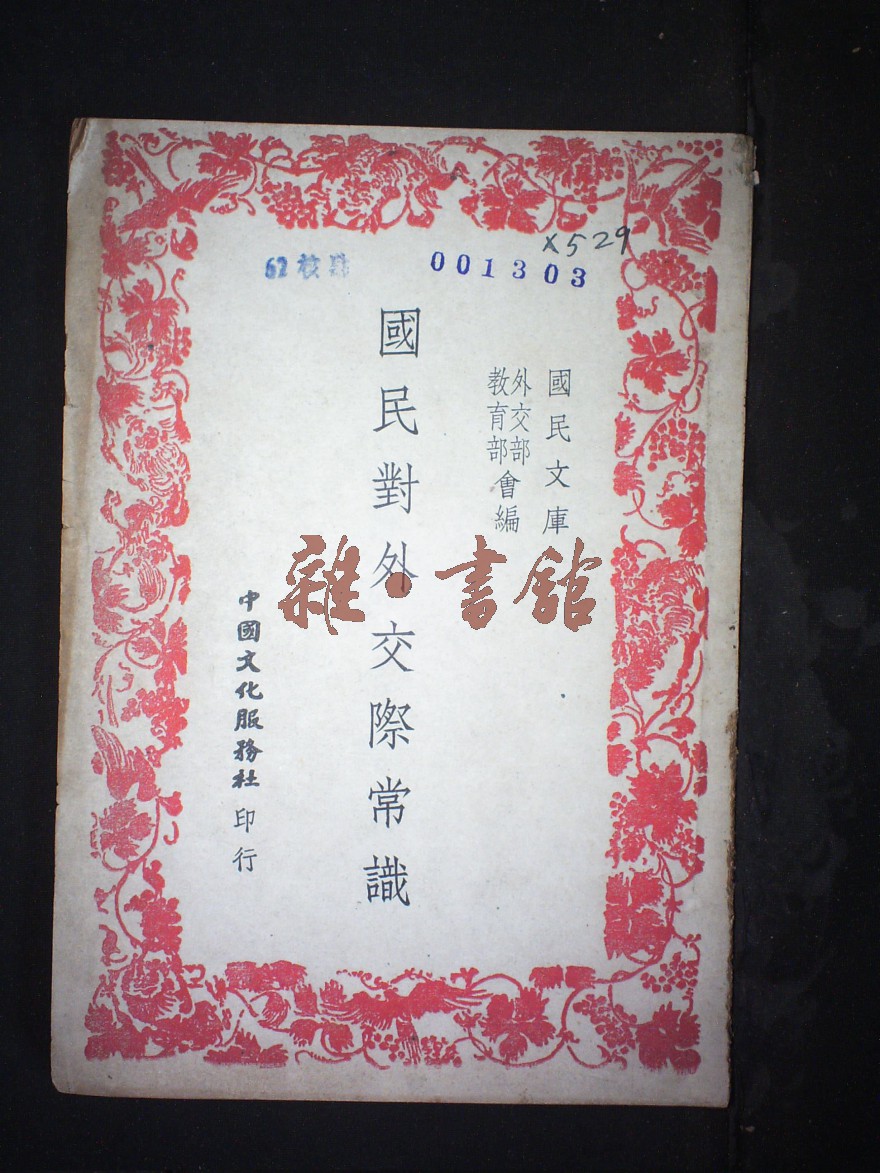 X529
001303
國民文庫
外交部
教育部
會編
國民對外交際常識
中國文化服務社 印行
雜·書館